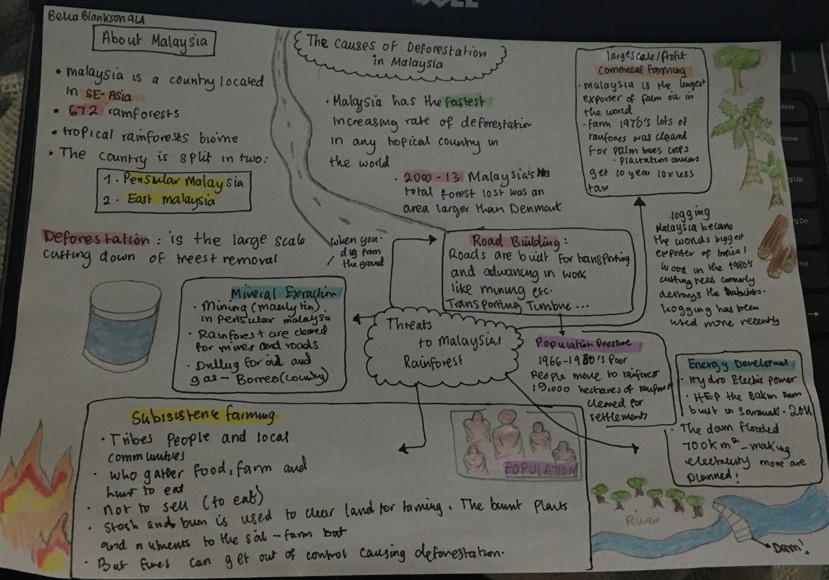 DELL
Bella Blankson 9L1
About Malaysia
• malaysia is a country located
in SE-Asia
• 672 rainforests
• tropical rainforests biome
• The country is split in two:
1. Pensular Malaysia
2. East malaysia
Deforestation: is the large scale
cutting down of trees + removal
The causes of Deforestation
in Malaysia
• Malaysia has the fastest
increasing rate of deforestation
in any tropical country in
the world
• 2000-13 Malaysia's
total forest lost was an
area larger than Denmark
large scale/Profit
comercial farming
• malaysia is the largest
exporter of Palm oil in
the world
• farm 1970's lots of
rainfores was cleared
for palm trees crops
• Plantation owners
get 10 year 10x less
tax
logging
Malaysia became
the worlds biggest
exporter of tropical
wood in the 1980's
cutting trees
destroys the
logging has been
used more recently
when you
dig from
the ground
Road Building:
Roads are built for transporting
and advancing in work
like mining etc.
Transporting Timbre...
Mineral Exraction
• Mining (mainly tin)
in Pensular malaysia
• Rainforest are cleared
for mines and roads
• Drilling for oil and
gas - Borneo (country)
Threats
to Malaysian
Rainforest
Population Pressure
1966-1980's Poor
People move to rainforest
19,000 hectares of rainforest
cleared for
settlements
Energy Development
• Hydro Electric power
• HEP the Bakun Dam
built in Sarawak - 2011
• The dam flooded
700km² - making
electricity more are
planned!
Subisistence farming
• Tribes people and local
communities
• who gather food, farm and
hunt to eat
• not to sell (to eat)
• Slash and burn is used to clear land for farming. The burnt plants
and nutrients to the soil - farm but
• But fires can get out of control causing deforestation.
POPULATION
River
Dam!